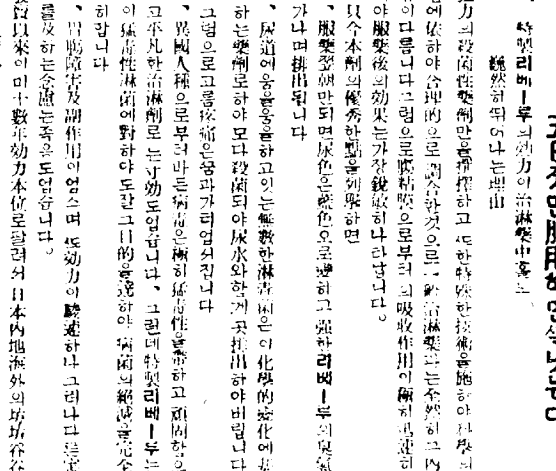 고日지만服用해안심낫는다
特製리베ー루의効力이治淋藥中홀노
巍然히뛰어나는理由
力의殺菌性藥劑만을撰擇하고 또한特殊한技術을施하야科學의
에依하야合理的으로調合한것으로一般治淋藥과는全然히그內
이다름니다그럼으로膓粘膜으로부터의吸收作用이極히迅速히
야服藥後의効果는가장銳敏히나타납니다。
只今本劑의優秀한點을列擧하면
、服藥翌朝만되면尿色은藍色으로變하고强한리베ー루의臭氣
가나며排出됩니다
、尿道에웅을웅을하고잇는無數한淋毒菌은이化學的變化에基
하는藥劑로하야모다殺菌되야尿水와함게곳排出하야버립니다
그럼으로고름疼痛은꿈과가티업서집니다
、異國人種으로부터바든病毒은極히猛毒性을帶하고頑固함으
고平凡한治淋劑로는寸効도업습니다、그런데特製리베ー루는
이猛毒性淋菌에對하야도잘그目的을達하야病菌의絶滅을完全
히합니다
、胃腸障害及副作用이업스며또効力이驗速하나그러나다른害
를及하는念慮는족음도업습니다。
發賣以來이미十數年効力本位로팔려서日本內地海外의坊坊谷谷